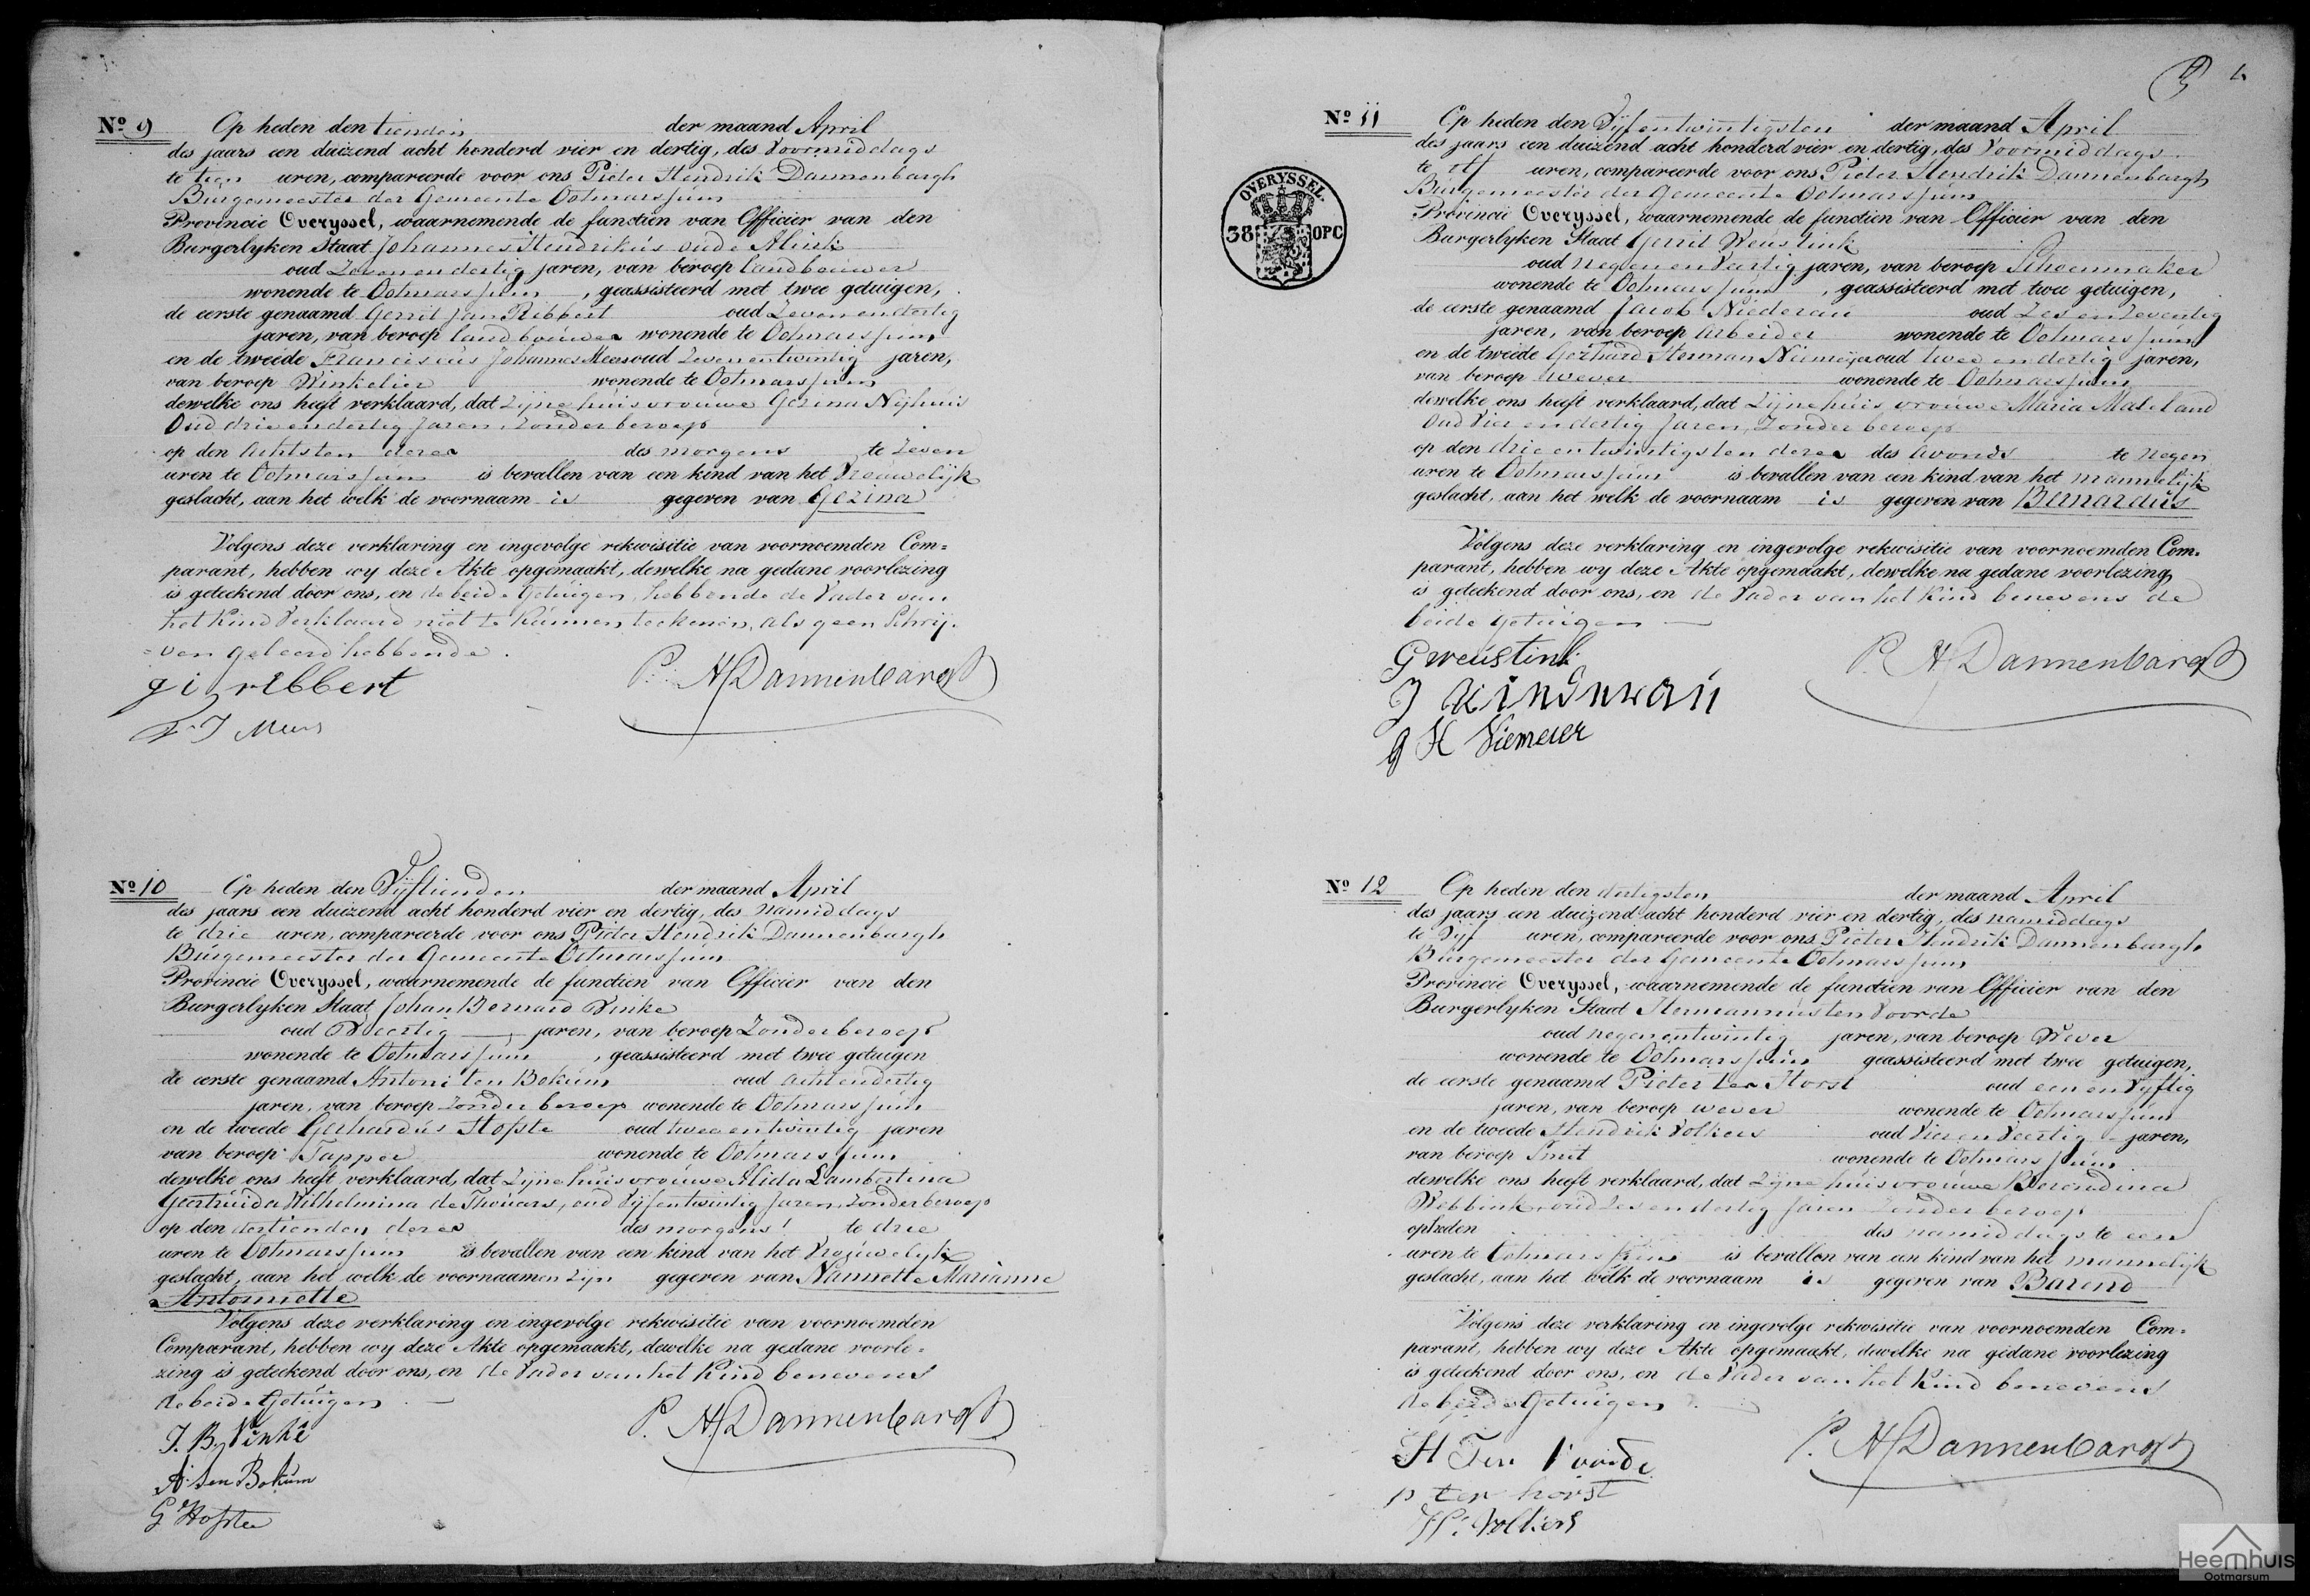 Nº 9 Op heden den tienden der maand April
des jaars een duizend acht honderd vier en dertig, des Voormiddags
te tien uren, compareerde voor ons Pieter Hendrik Dannenbargh
Burgemeester der Gemeente Ootmarssum
Provincie Overyssel, waarnemende de functien van Officier van den
Burgerlyken Staat Johannes Hendrikus oude Alink
oud Zeven en dertig jaren, van beroep landbouwer
wonende te Ootmarssum, geassisteerd met twee getuigen,
de eerste genaamd Gerrit Jan Ribbert oud Zeven en dertig
jaren, van beroep landbouwer wonende te Ootmarssum
en de tweede Franciscus Johannes Meers oud Zeven en twintig jaren,
van beroep Winkelier wonende te Ootmarssum
dewelke ons heeft verklaard, dat Zijne huisvrouwe Gezina Nijhuis
Oud drie en dertig Jaren, Zonder beroep
op den Achtsten dezer des morgens te Zeven
uren te Ootmarssum is bevallen van een kind van het Vrouwelijk
geslacht, aan het welk de voornaam is gegeven van Gezina
Volgens deze verklaring en ingevolge rekwisitie van voornoemden Com=
parant, hebben wy deze Akte opgemaakt, dewelke na gedane voorlezing
is geteekend door ons, en de beide Getuigen, hebbende de Vader van
het Kind Verklaard niet te Kunnen teekenen, als geen Schrij-
=ven geleerd hebbende.
g j ribbert P. H Dannenbargh
F. J Meers
Nº 10 Op heden den Vijftienden der maand April
des jaars een duizend acht honderd vier en dertig, des namiddags
te drie uren, compareerde voor ons Pieter Hendrik Dannenbargh
Burgemeester der Gemeente Ootmarssum
Provincie Overyssel, waarnemende de functien van Officier van den
Burgerlyken Staat Johan Bernard Vinke
oud Veertig jaren, van beroep Zonder beroep
wonende te Ootmarssum, geassisteerd met twee getuigen
de eerste genaamd Antoni ten Bokum oud acht en dertig
jaren, van beroep Zonder beroep wonende te Ootmarssum
en de tweede Gerhardus Hofste oud twee en twintig jaren
van beroep Tapper wonende te Ootmarssum
dewelke ons heeft verklaard, dat Zijne huisvrouwe Alida Lambertina
Geertruida Wilhelmina de Thouars, oud Vijf en twintig Jaren, Zonder beroep
op den dertienden dezer des morgens te drie
uren te Ootmarssum is bevallen van een kind van het Vrouwelijk
geslacht, aan het welk de voornaamen Zijn gegeven van Nannette Marianne
Antoinette
Volgens deze verklaring en ingevolge rekwisitie van voornoemden
Comparant, hebben wy deze Akte opgemaakt, dewelke na gedane voorle=
zing is geteekend door ons, en de Vader van het Kind benevens
de beide Getuigen
J. B. Vinke P. H Dannenbargh
A ten Bokum
G Hofste
Nº 11 Op heden den Vijf en twintigsten der maand April
des jaars een duizend acht honderd vier en dertig, des Voormiddags
te elf uren, compareerde voor ons Pieter Hendrik Dannenbargh
Burgemeester der Gemeente Ootmarssum
OVERYSSEL
38 OPC
Provincie Overyssel, waarnemende de functien van Officier van den
Burgerlyken Staat Gerrit Weustink
oud negen en Veertig jaren, van beroep Schoenmaker
wonende te Ootmarssum, geassisteerd met twee getuigen,
de eerste genaamd Jacob oud Zes en Zeventig
jaren, van beroep Arbeider wonende te Ootmarssum
en de tweede Gerhard Herman Niemeijer oud twee en dertig jaren,
van beroep Wever wonende te Ootmarssum
dewelke ons heeft verklaard, dat Zijne huisvrouwe Maria Mateland
Oud Vier en dertig Jaren, Zonder beroep
op den drie en twintigsten dezer des Avonds te negen
uren te Ootmarssum is bevallen van een kind van het mannelijk
geslacht, aan het welk de voornaam is gegeven van Bernardus
Volgens deze verklaring en ingevolge rekwisitie van voornoemden Com=
parant, hebben wy deze Akte opgemaakt, dewelke na gedane voorlezing
is geteekend door ons, en de Vader van het Kind benevens de
beide Getuigen
G weustink P. H Dannenbargh
J
g H Niemeier
Nº 12 Op heden den dertigsten der maand April
des jaars een duizend acht honderd vier en dertig, des namiddags
te Vijf uren, compareerde voor ons Pieter Hendrik Dannenbargh
Burgemeester der Gemeente Ootmarssum
Provincie Overyssel, waarnemende de functien van Officier van den
Burgerlyken Staat Hermannus ten Voorde
oud negen en twintig jaren, van beroep Wever
wonende te Ootmarssum geassisteerd met twee getuigen,
de eerste genaamd Pieter ter Horst oud een en Vijftig
jaren, van beroep wever wonende te Ootmarssum
en de tweede Hendrik Volkers oud Vier en Veertig jaren,
van beroep Smit wonende te Ootmarssum
dewelke ons heeft verklaard, dat Zijne huisvrouwe Berendina
Webbink, oud Zes en dertig Jaren Zonder beroep
op heden des namiddags te een
uren te Ootmarssum is bevallen van een kind van het mannelijk
geslacht, aan het welk de voornaam is gegeven van Barend
Volgens deze verklaring en ingevolge rekwisitie van voornoemden Com=
parant, hebben wy deze Akte opgemaakt, dewelke na gedane voorlezing
is geteekend door ons, en de Vader van het Kind benevens
de beide Getuigen
H Ten Voorde P. H Dannenbargh
p ter horst
H: Volkers
Heemhuis
Ootmarsum